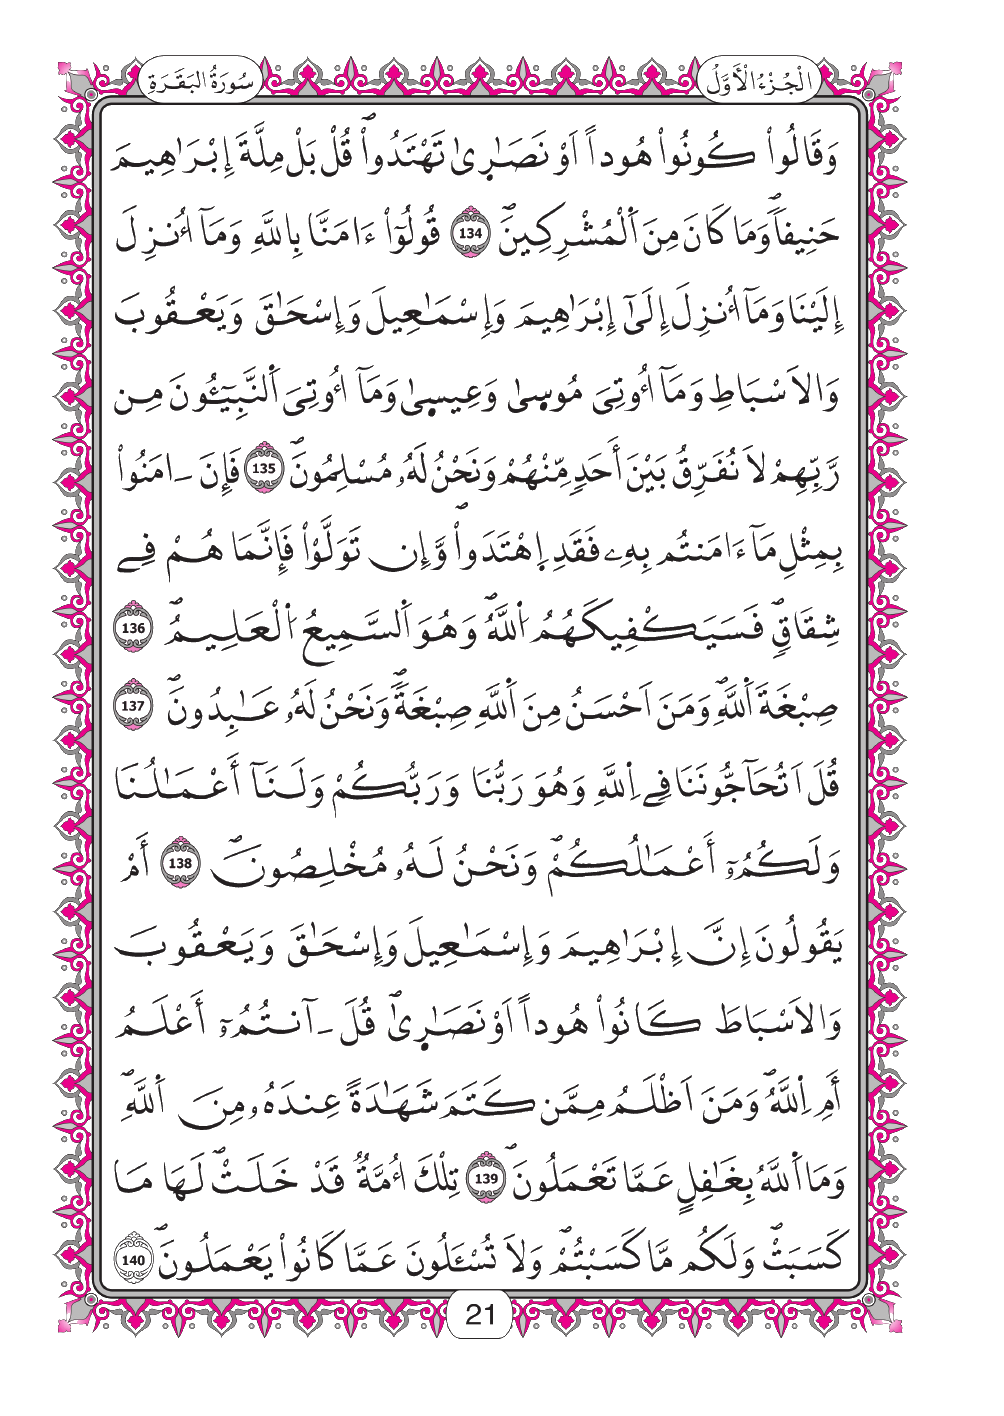 الْجُزْءُ الْأَوَّلُ
سُورَةُ الْبَقَرَةِ
وَقَالُواْ كُونُواْ هُوداً اَوْ نَصَـٰر۪ىٰ تَهْتَدُواْۖ قُلْ بَلْ مِلَّةَ إِبْرَاهِيمَ
حَنِيفاٗۖ وَمَا كَانَ مِنَ اَ۬لْمُشْرِكِينَۖ 134 قُولُوٓاْ ءَامَنَّا بِاللَّهِ وَمَآ أُنزِلَ
إِلَيْنَا وَمَآ أُنزِلَ إِلَىٰٓ إِبْرَاهِيمَ وَإِسْمَـٰعِيلَ وَإِسْحَـٰقَ وَيَعْقُوبَ
وَالاَسْبَاطِ وَمَآ أُوتِيَ مُوس۪ىٰ وَعِيس۪ىٰ وَمَآ أُوتِيَ اَ۬لنَّبِيٓـُٔونَ مِن
رَّبِّهِمْ لاَ نُفَرِّقُ بَيْنَ أَحَدٍ مِّنْهُمْ وَنَحْنُ لَهُۥ مُسْلِمُونَۖ 135 فَإِنَ ـ اٰمَنُواْ
بِمِثْلِ مَآ ءَامَنتُم بِهِۦ فَقَدِ إِ۪هْتَدَواْۖ وَّإِن تَوَلَّوْاْ فَإِنَّمَا هُمْ فِے
شِقَاقٍۖ فَسَيَكْفِيكَهُمُ اُ۬للَّهُۖ وَهُوَ اَ۬لسَّمِيعُ اُ۬لْعَلِيمُۖ 136
صِبْغَةَ اَ۬للَّهِۖ وَمَنَ اَحْسَنُ مِنَ اَ۬للَّهِ صِبْغَةٗۖ وَنَحْنُ لَهُۥ عَـٰبِدُونَۖ 137
قُلَ اَتُحَآجُّونَنَا فِے اِ۬للَّهِ وَهُوَ رَبُّنَا وَرَبُّكُمْ وَلَنَآ أَعْمَـٰلُنَا
وَلَكُمُۥٓ أَعْمَـٰلُكُمْۖ وَنَحْنُ لَهُۥ مُخْلِصُونَۖ 138 أَمْ
يَقُولُونَ إِنَّ إِبْرَاهِيمَ وَإِسْمَـٰعِيلَ وَإِسْحَـٰقَ وَيَعْقُوبَ
وَالاَسْبَاطَ كَانُواْ هُوداً اَوْ نَصَـٰر۪ىٰۖ قُلَ ـ آنتُمُۥٓ أَعْلَمُ
أَمِ اِ۬للَّهُۖ وَمَنَ اَظْلَمُ مِمَّن كَتَمَ شَهَـٰدَةً عِندَهُۥ مِنَ اَ۬للَّهِۖ
وَمَا اَ۬للَّهُ بِغَـٰفِلٍ عَمَّا تَعْمَلُونَۖ 139 تِلْكَ أُمَّةٌ قَدْ خَلَتْۖ لَهَا مَا
كَسَبَتْۖ وَلَكُم مَّا كَسَبْتُمْۖ وَلاَ تُسْـَٔلُونَ عَمَّا كَانُواْ يَعْمَلُونَۖ 140
21